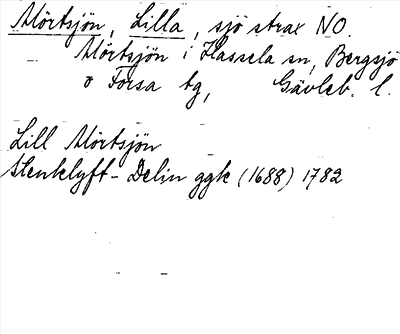 Mörtsjön, Lilla, sjö strax NO.
Mörtsjön i Hassela sn, Bergsjö
o Forsa tg, Gävleb. l.
Lill Mörtsjön
Stenklyft - Delin ggk (1688) 1782